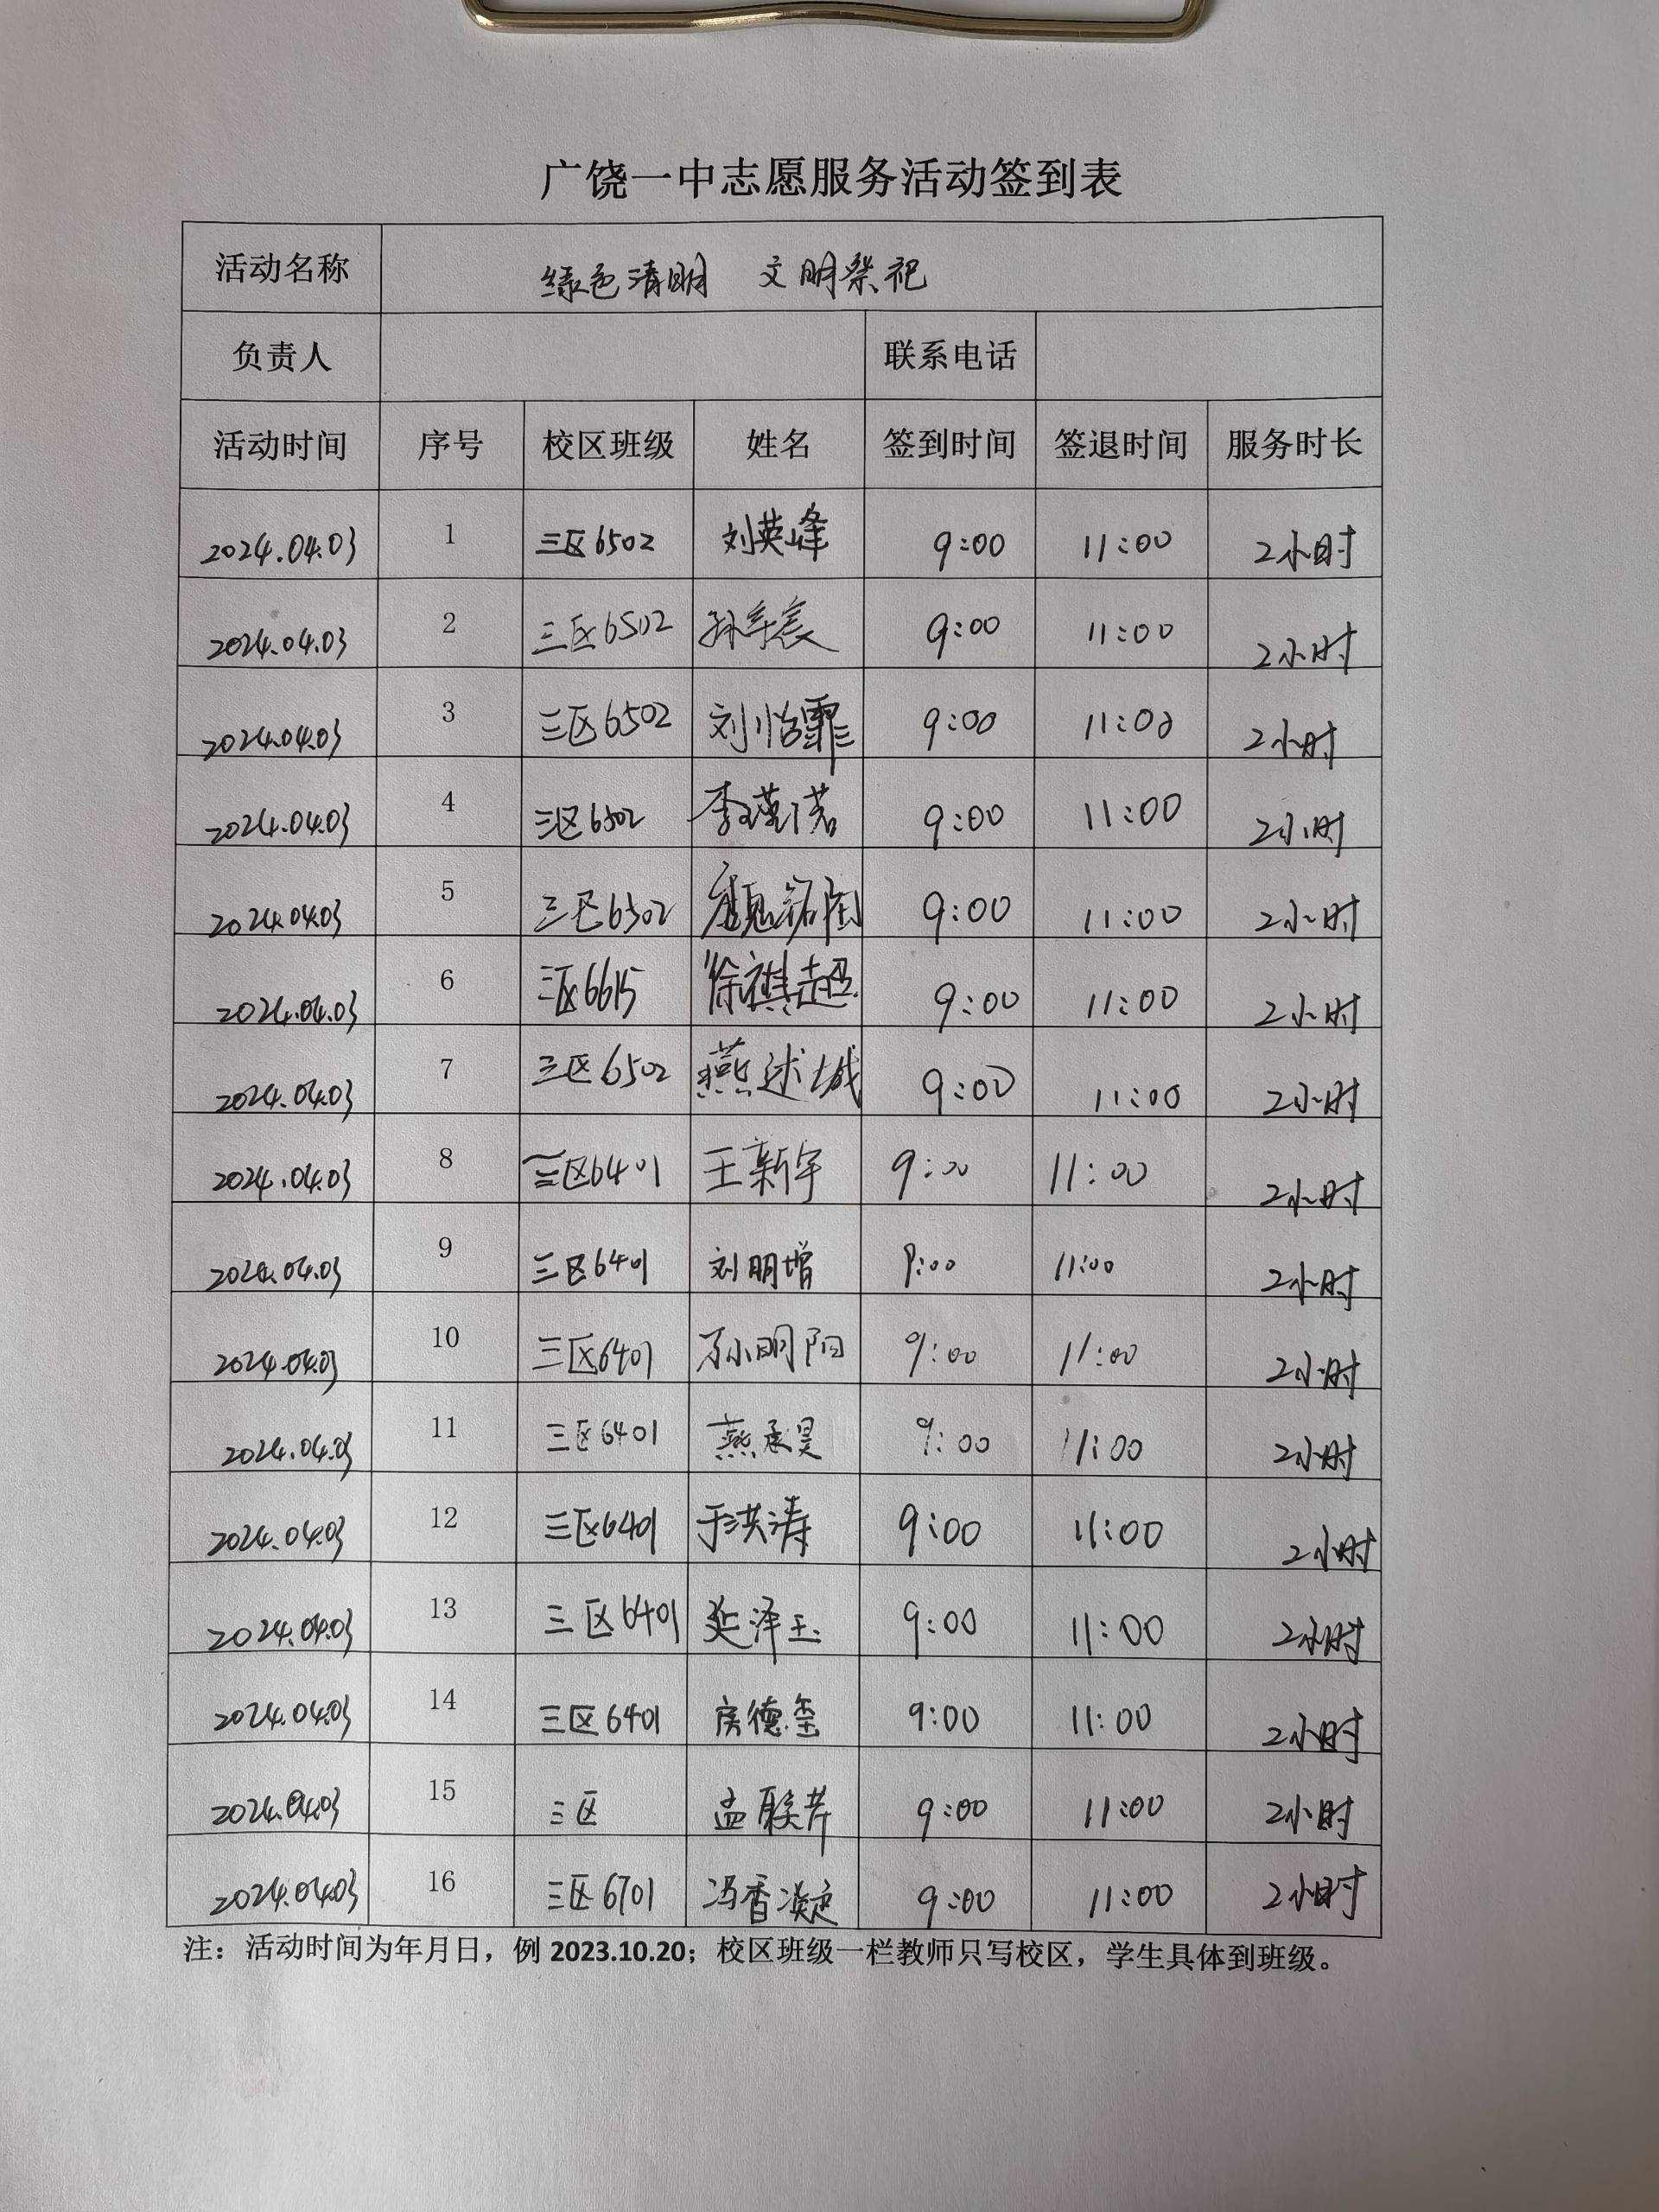 广饶一中志愿服务活动签到表
活动名称 绿色清明 文明祭祀
负责人 联系电话
活动时间 序号 校区班级 姓名 签到时间 签退时间 服务时长
2024.04.03 1 三区6502 刘英峰 9:00 11:00 2小时
2024.04.03 2 三区6502 9:00 11:00 2小时
2024.04.03 3 三区6502 刘怡霏 9:00 11:00 2小时
2024.04.03 4 三区6502 李瑾偌 9:00 11:00 2小时
2024.04.03 5 三区6502 9:00 11:00 2小时
2024.04.03 6 三区6615 徐祺超 9:00 11:00 2小时
2024.04.03 7 三区6502 燕述城 9:00 11:00 2小时
2024.04.03 8 三区6401 王新宇 9:00 11:00 2小时
2024.04.03 9 三区6401 刘明增 9:00 11:00 2小时
2024.04.03 10 三区6401 孙明阳 9:00 11:00 2小时
2024.04.03 11 三区6401 燕承昊 9:00 11:00 2小时
2024.04.03 12 三区6401 于洪涛 9:00 11:00 2小时
2024.04.03 13 三区6401 延泽玉 9:00 11:00 2小时
2024.04.03 14 三区6401 房德玺 9:00 11:00 2小时
2024.04.03 15 三区 孟联芹 9:00 11:00 2小时
2024.04.03 16 三区6701 冯香凝 9:00 11:00 2小时
注：活动时间为年月日，例 2023.10.20；校区班级一栏教师只写校区，学生具体到班级。